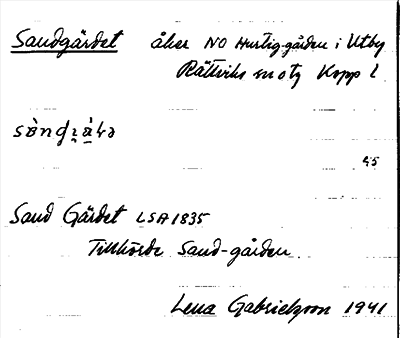 Sandgärdet åker NO Hurtig-gården i Utby
Rättviks sn otg Kopp l
45
Sand Gärdet LSA 1835
Tillhörde Sand-gården
Lena Gabrielsson 1941